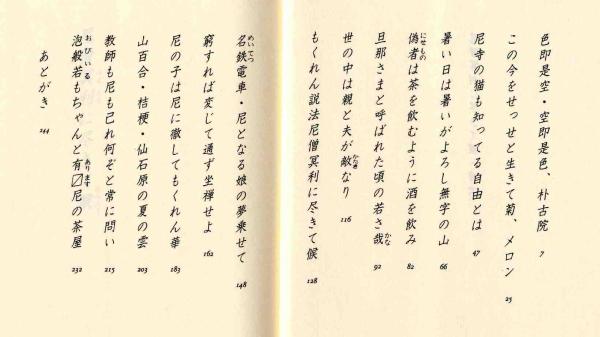 色即是空・空即是色、朴古院 7
この今をせっせと生きて菊、メロン 25
尼寺の猫も知ってる自由とは 47
暑い日は暑いがよろし無字の山 66
偽者は茶を飲むように酒を飲み 82
にせもの
旦那さまと呼ばれた頃の若さ哉 92
かな
世の中は親と夫が敵なり 116
かたき
もくれん説法尼僧冥利に尽きて候 128
名鉄電車・尼となる娘の夢乗せて 148
めいてつ
窮すれば変じて通ず坐禅せよ 162
尼の子は尼に徹してもくれん華 183
山百合・桔梗・仙石原の夏の雲 203
教師も尼も己れ何ぞと常に問い 215
泡般若もちゃんと有〼尼の茶屋 232
おびいる
あります
あとがき 244